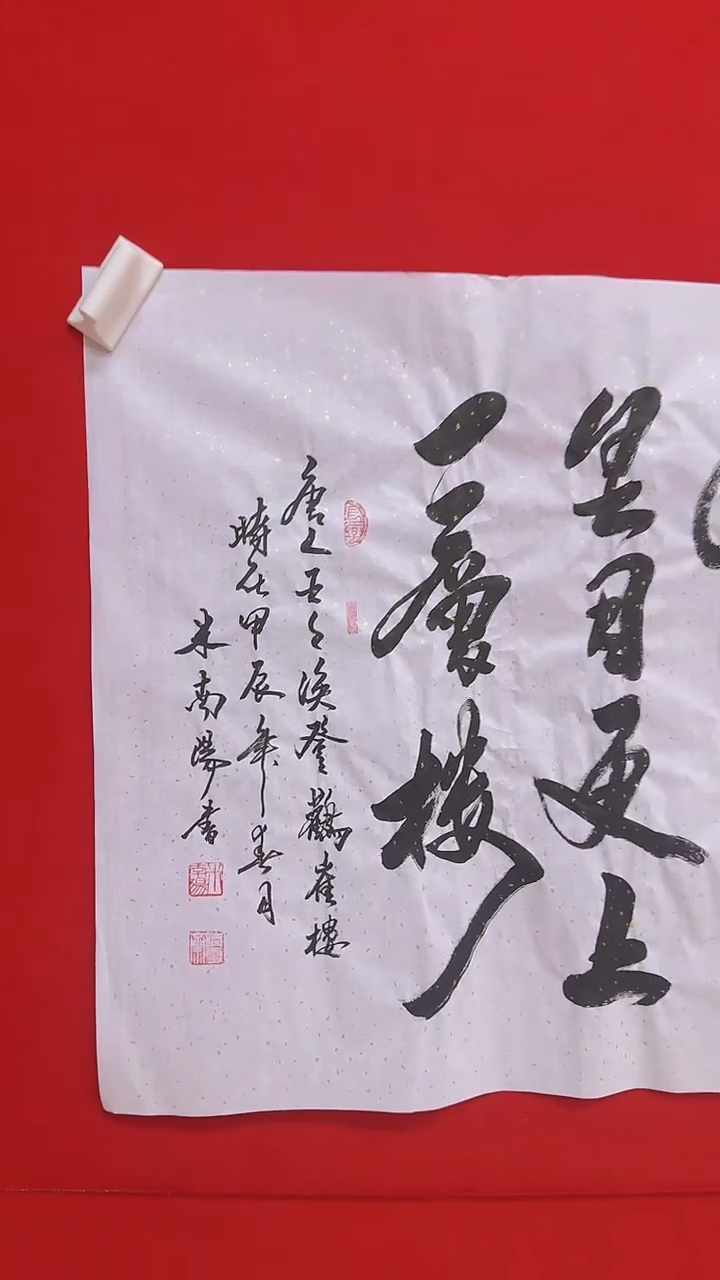 里目更上
一層樓
唐人王之渙登鸛雀樓
時在甲辰年春月
米南陽書